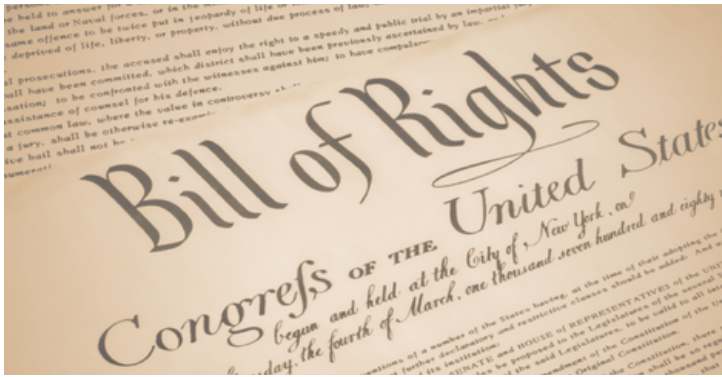 be held to answer for a
the land or Naval forces, or in the
same offence to be twice put in jeopardy of life or
deprived of life, liberty, or property, without due process of law
l prosecutions, the accused shall enjoy the right to a speedy and public trial by an impartial
all have been committed, which district shall have been previously ascertained by law, and
sation; to be confronted with the witnesses against him; to have compulsory
ssistance of counsel for his defence.
t common law, where the value in controversy shall
a jury, shall be otherwise re-exami
ive bail shall not be
numerati
Bill of Rights
Congreſs OF THE United States
begun and held at the City of New York, on
sday, the fourth of March, one thousand seven hundred and eighty
entions of a number of the States having, at the time of their adopting the
t further declaratory and restrictive clauses should be added: And
its institution:
SENATE and HOUSE of REPRESENTATIVES of the UNIT
be proposed to the Legislatures of the several
the said Legislatures, to be valid to all
mendment of the Constitution of the
Original Constitution.
the Constitution, there
shall be so
thousand
that